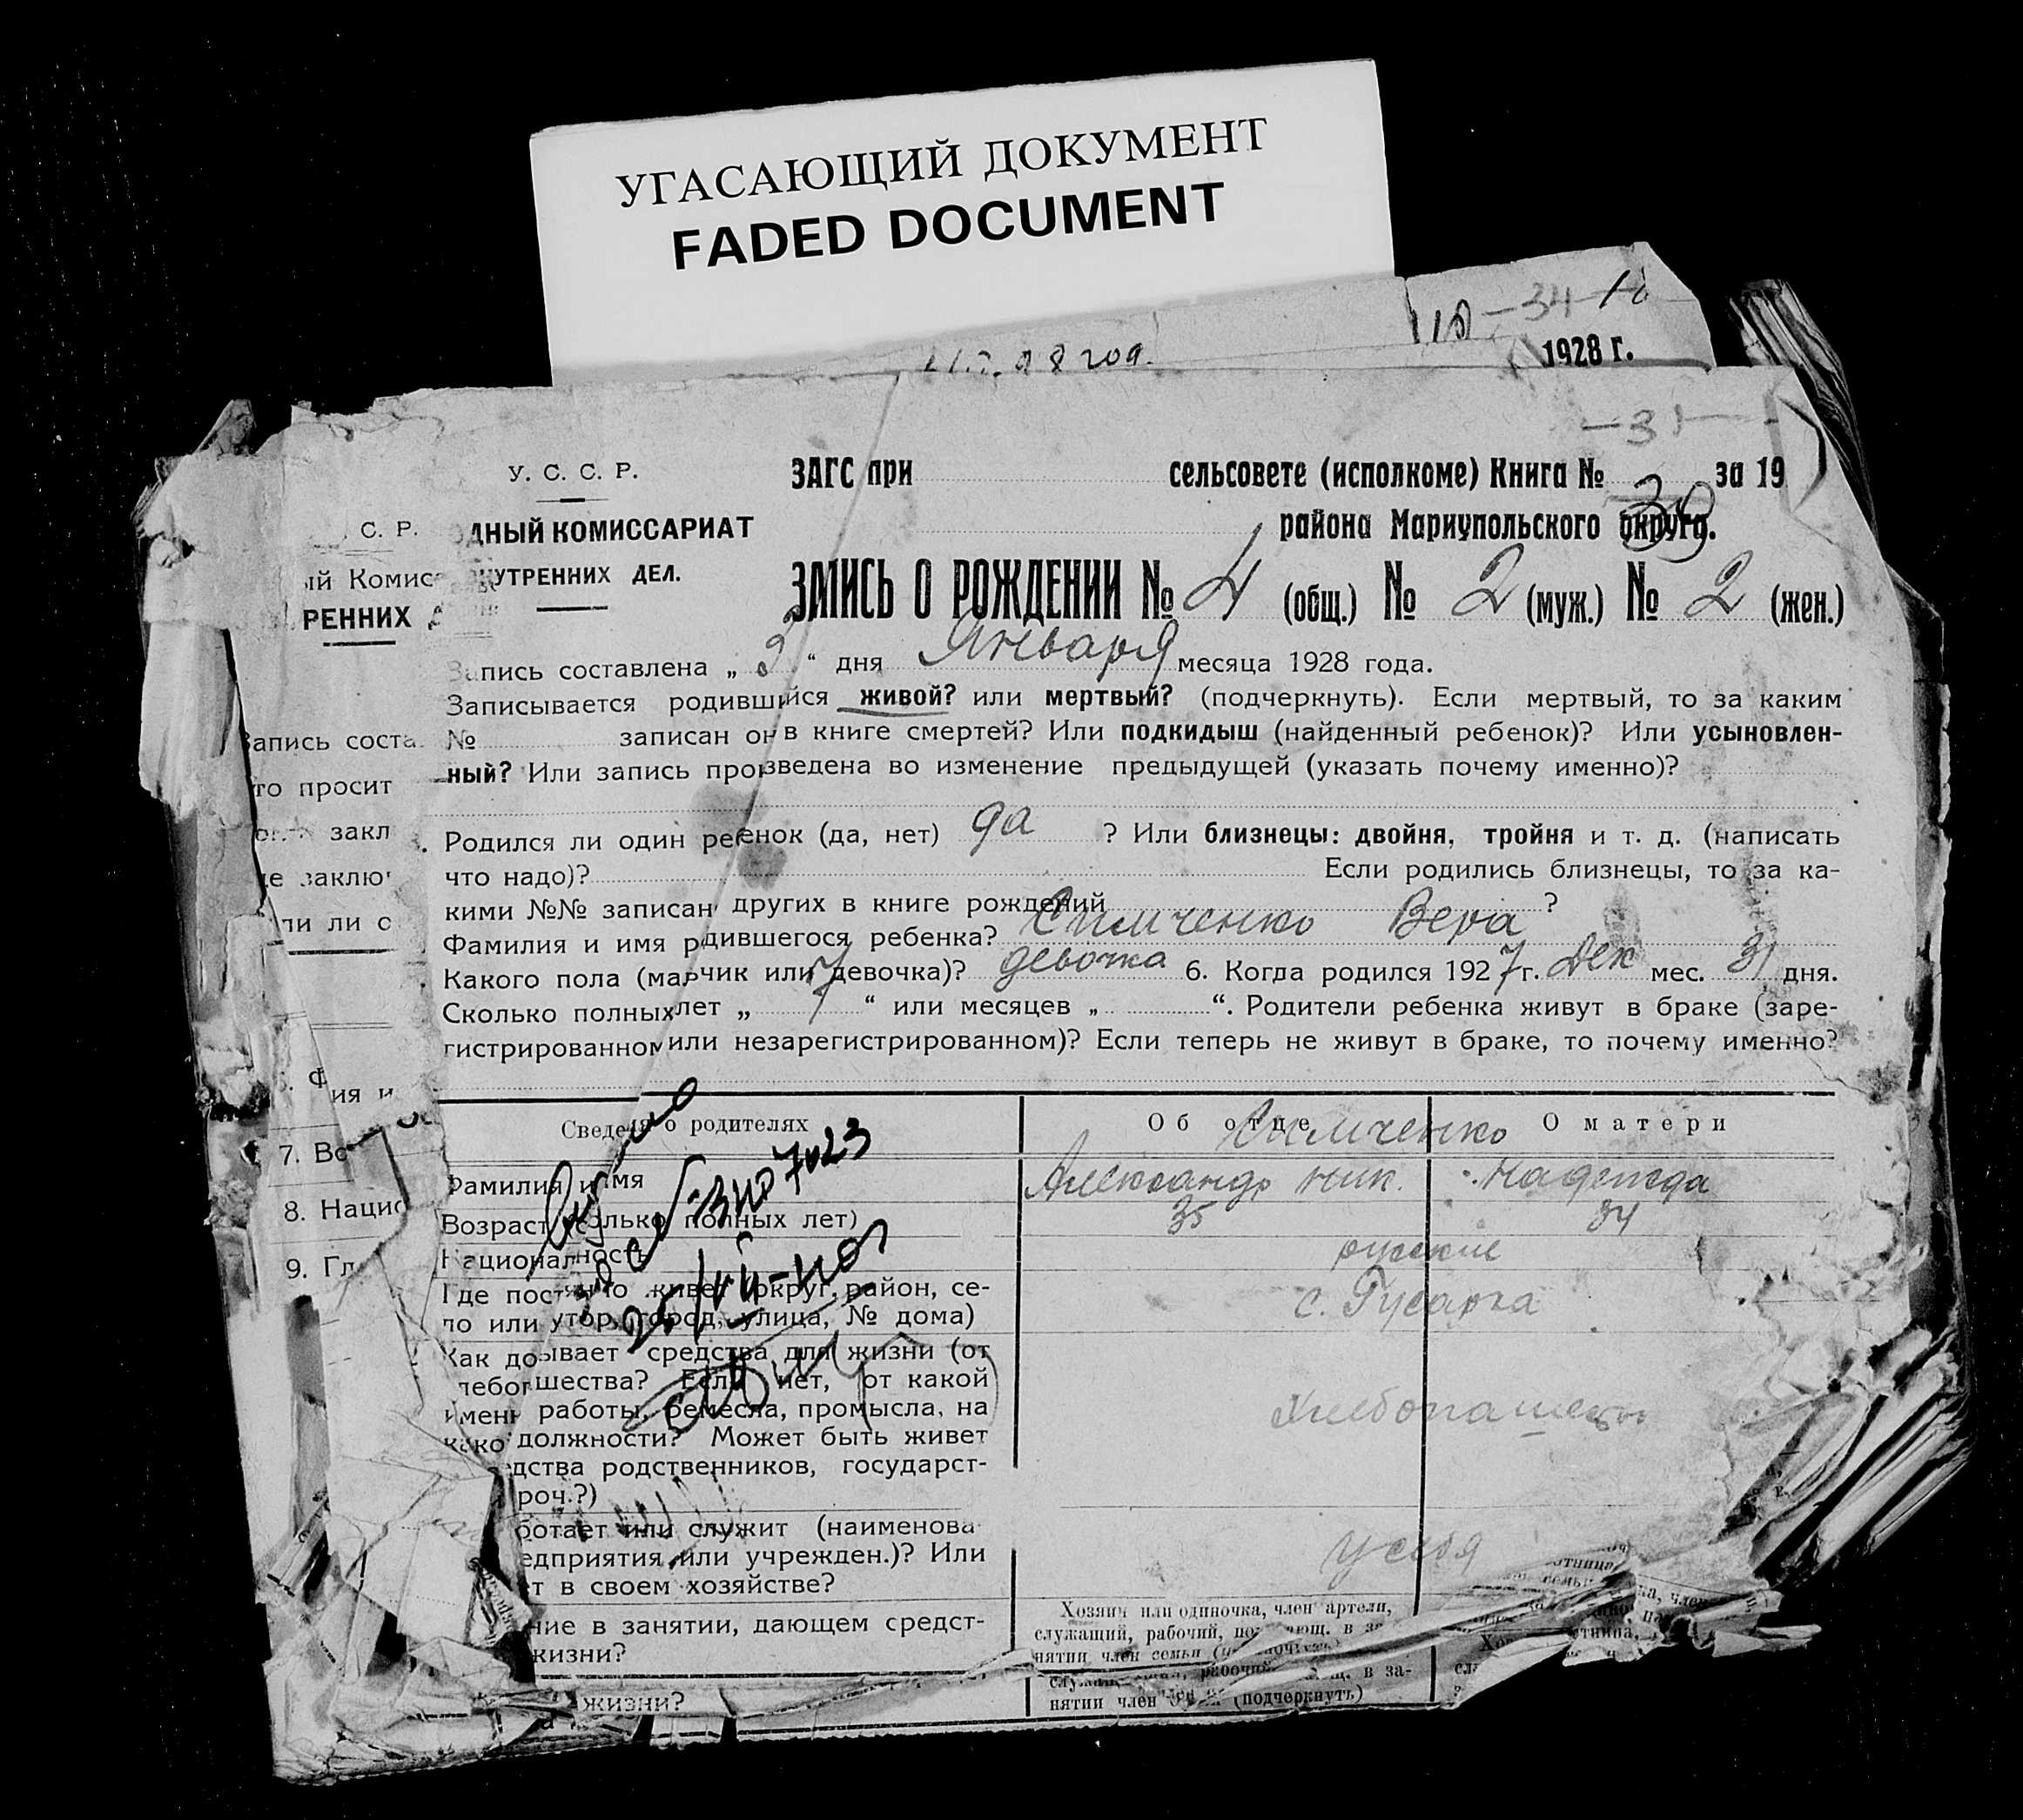 УГАСАЮЩИЙ ДОКУМЕНТ
FADED DOCUMENT
-34-
1928 г.
год.
-31-
У. С. С. Р.
ЗАГС при сельсовете (исполкоме) Книга № за 19
39
С. Р. ДНЫЙ КОМИССАРИАТ
района Мариупольского округа.
ый Комисс УТРЕННИХ ДЕЛ.
РЕННИХ
ЗАПИСЬ О РОЖДЕНИИ № 4 (общ.) № 2 (муж.) № 2 (жен.)
Запись составлена „ 3 “ дня Января месяца 1928 года.
Записывается родившийся живой? или мертвый? (подчеркнуть). Если мертвый, то за каким
№ записан он в книге смертей? Или подкидыш (найденный ребенок)? Или усыновлен-
ный? Или запись произведена во изменение предыдущей (указать почему именно)?
Родился ли один ребенок (да, нет) да ? Или близнецы: двойня, тройня и т. д. (написать
что надо)? Если родились близнецы, то за ка-
кими №№ записан других в книге рождений ?
Фамилия и имя родившегося ребенка? Симченко Вера
Какого пола (мальчик или девочка)? девочка 6. Когда родился 1927 г. Дек мес. 31 дня.
Сколько полных лет „ 7 “ или месяцев „ “. Родители ребенка живут в браке (заре-
гистрированном или незарегистрированном)? Если теперь не живут в браке, то почему именно?
Запись соста
то просит
закл
де заклю
ли ли с
ия и
7. Во
8. Нацио
9. Гл
Сведения о родителях Об отце О матери
Симченко
Фамилия и имя Александр Ник. Надежда
Возраст (сколько полных лет) 35 34
Национальность русские
Где постоянно живет (округ, район, се-
ло или хутор, город, улица, № дома) с. Гусарка
Как добывает средства для жизни (от
хлебопашества? Если нет, от какой
именно работы, ремесла, промысла, на
какой должности? Может быть живет
дства родственников, государст-
роч.?)
Хлебопашество
ботает или служит (наименова-
едприятия или учрежден.)? Или
ет в своем хозяйстве?
у себя
ние в занятии, дающем средст-
жизни?
Хозяин или одиночка, член артели,
служащий, рабочий, помогающ. в за-
нятии член семьи
жизни?
рабочий
щ. в за-
нятии член (подчеркнуть)